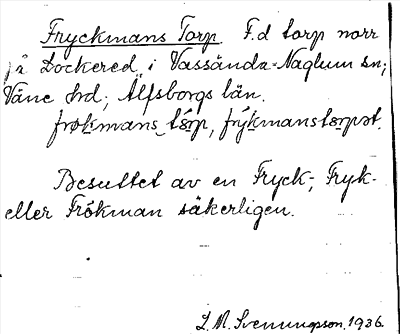 Fryckmans Torp. F.d torp norr
på Dockered, i Vassända-Naglum sn;
Väne hd; Älfsborgs län.
frøkmans tɷrp, frýkmanstɷrpət.
Besuttet av en Fryck-, Fryk-
eller Frökman säkerligen.
L. M. Svenungsson, 1936.